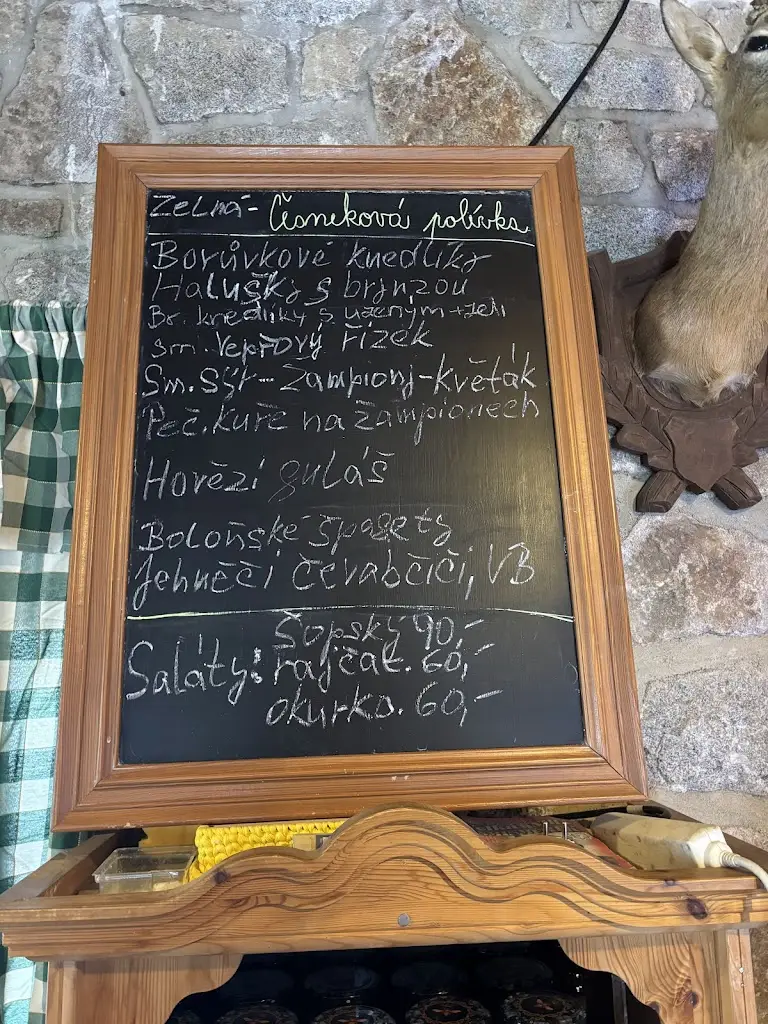 Zelná - Česneková polívka
Borůvkové knedlíky
Halušky s brynzou
Br. knedlíky s uzeným + zelí
sm. Vepřový řízek
Sm. Sýr - Žampiony - Květák
Peč. kuře na žampionech
Hovězí guláš
Boloňské špagety
Jehněčí čevabčiči, VB
Šopský 90,-
Saláty: rajčat. 60,-
okurko. 60,-